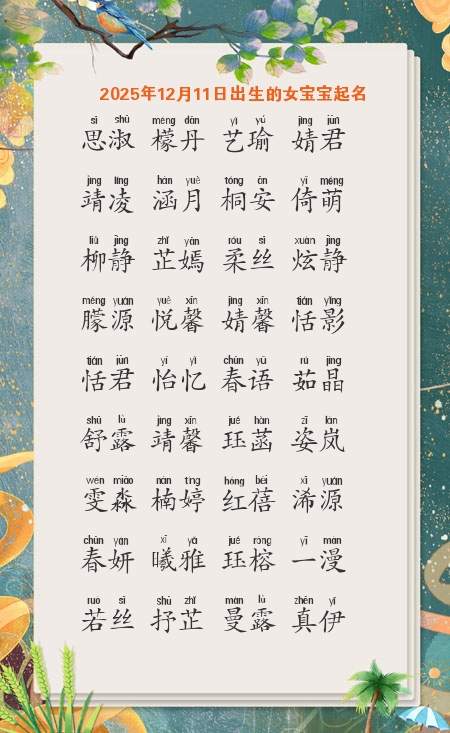 2025年12月11日出生的女宝宝起名
sī shū méng dān yì yú jīng jūn
思淑 檬丹 艺瑜 婧君
jìng líng hán yuè tóng ān yǐ méng
靖凌 涵月 桐安 倚萌
liǔ jìng zhǐ yān róu sī xuàn jìng
柳静 芷嫣 柔丝 炫静
méng yuán yuè xīn jìng xīn tián yǐng
朦源 悦馨 婧馨 恬影
tián jūn yí yì chūn yǔ rú jīng
恬君 怡忆 春语 茹晶
shū lù jìng xīn jué hàn zī lán
舒露 靖馨 珏菡 姿岚
wén miǎo nán tíng hóng bèi xī yuán
雯淼 楠婷 红蓓 浠源
chūn yán xī yǎ jué róng yī màn
春妍 曦雅 珏榕 一漫
ruò sī shū zhǐ màn lù zhēn yī
若丝 抒芷 曼露 真伊